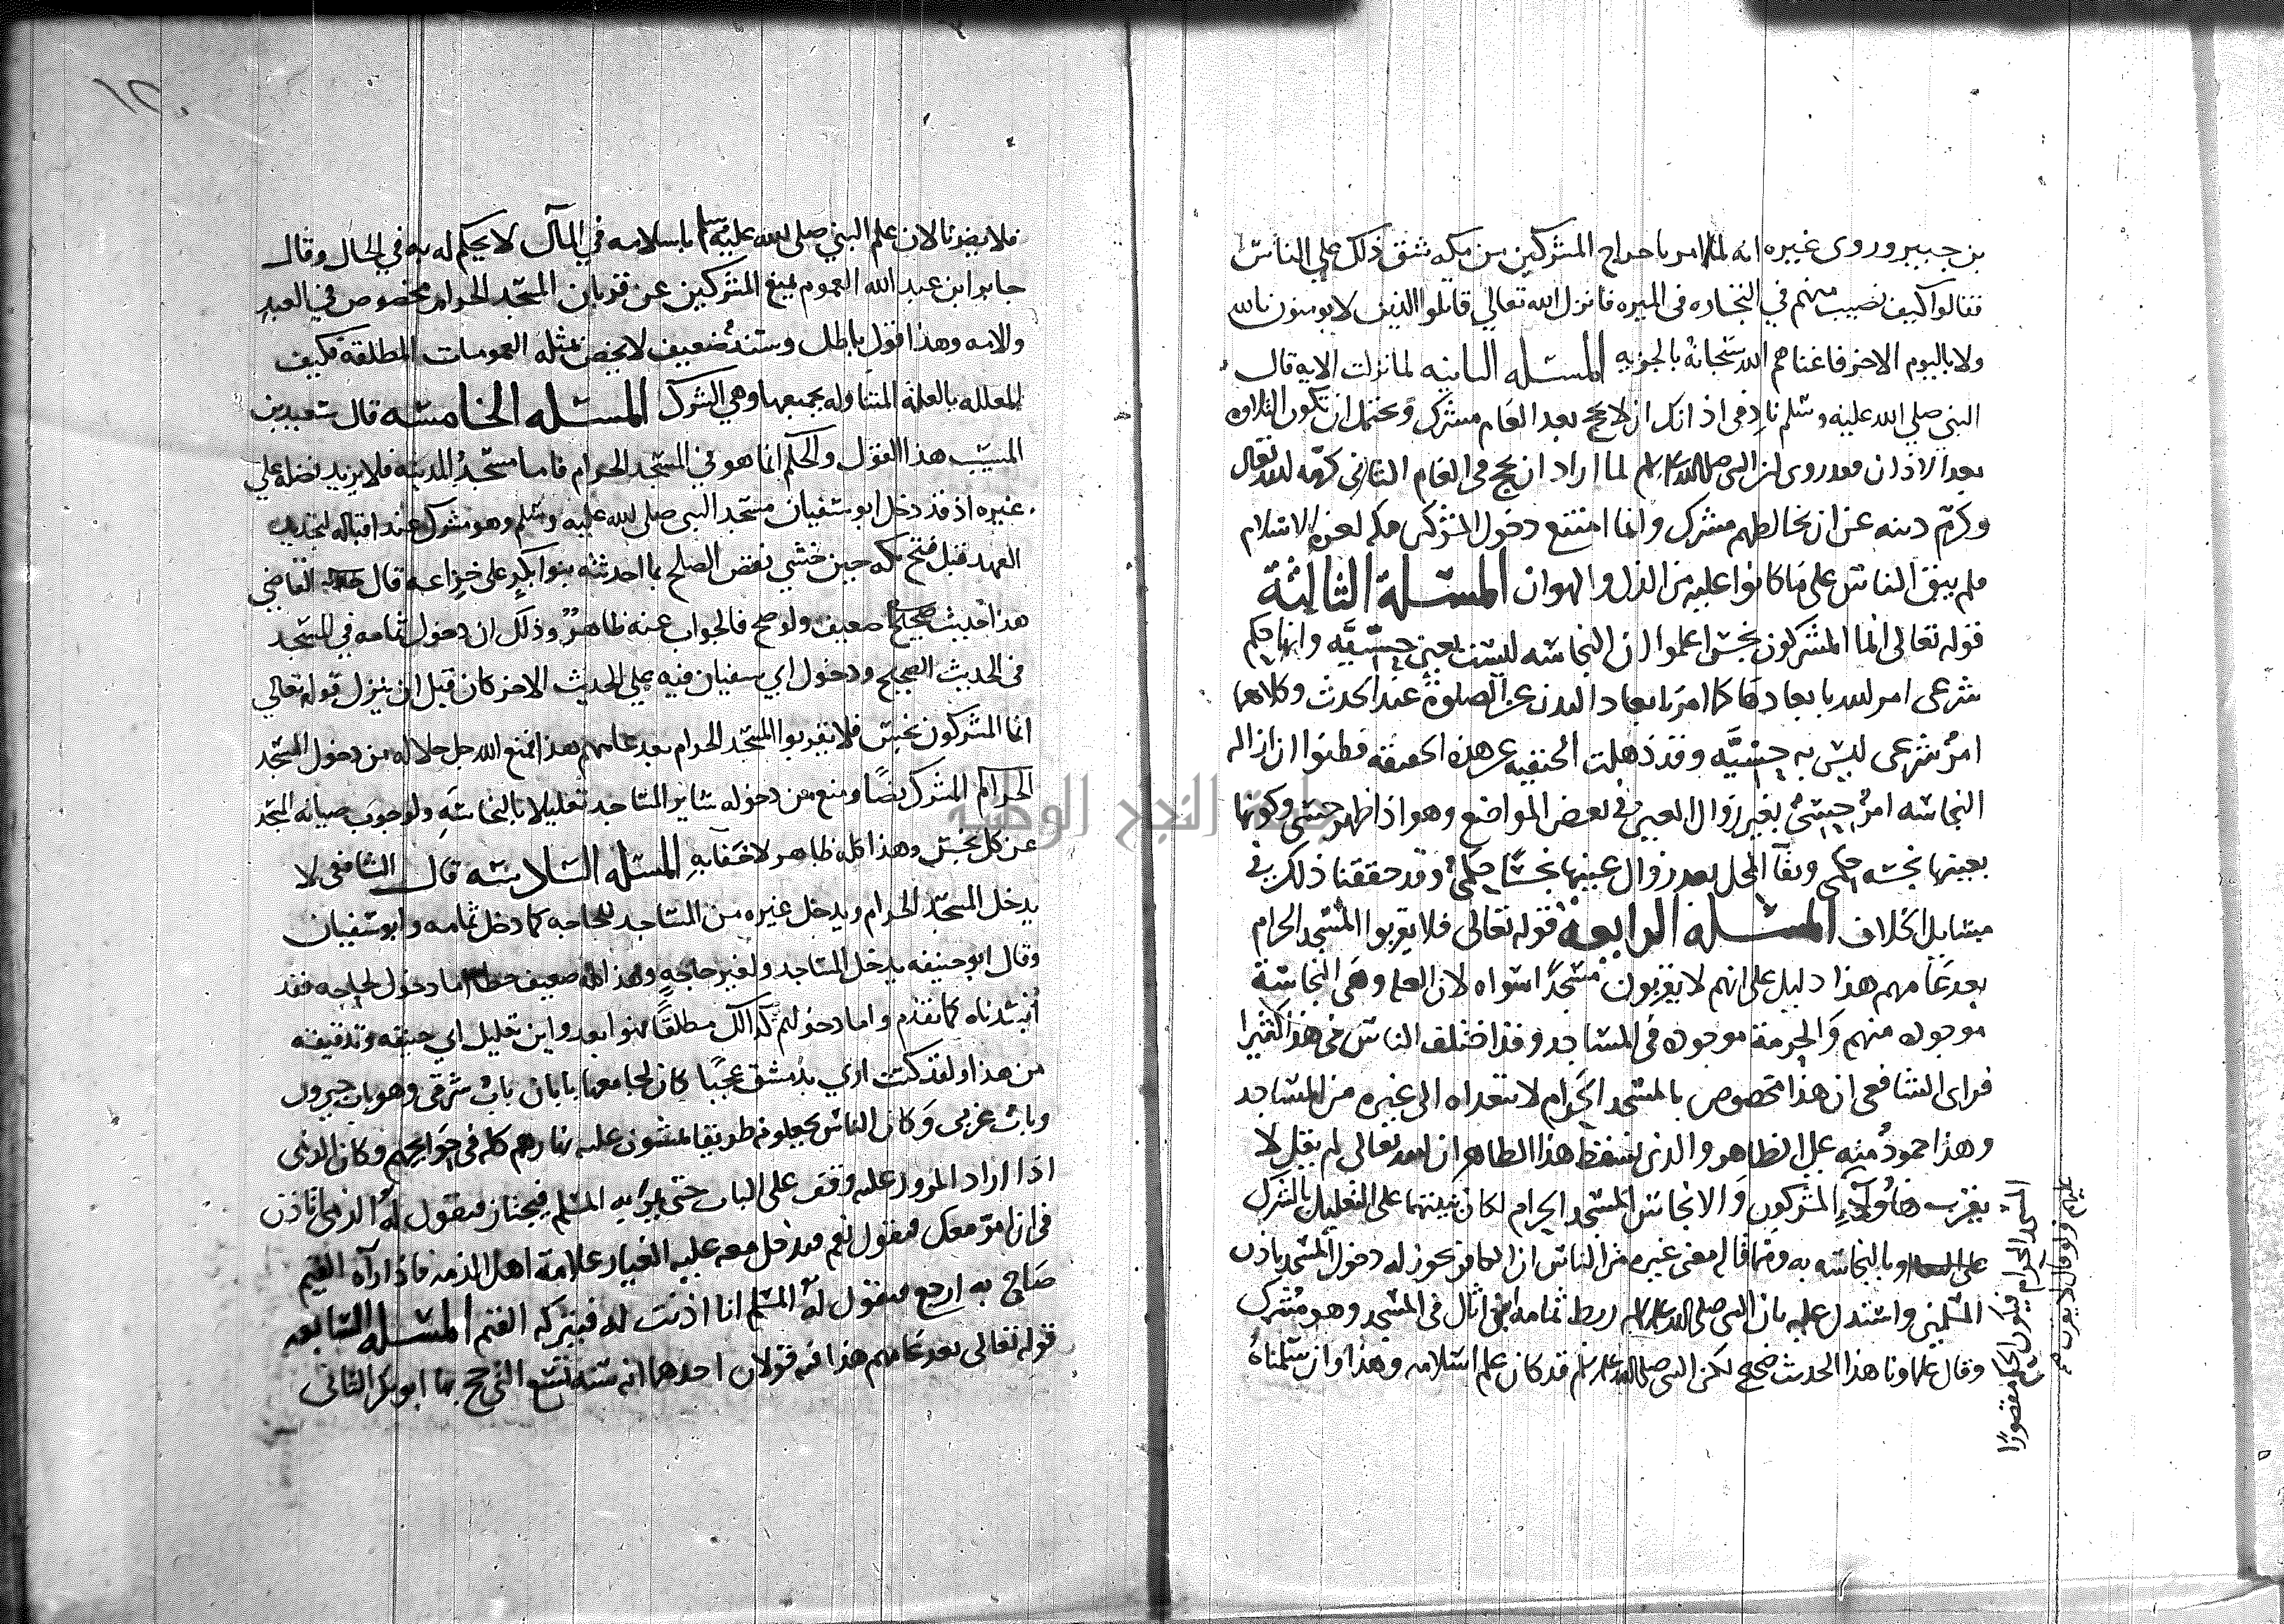 بن جبير وروى غيره انه لما امر باخراج المشركين من مكه شق ذلك علي الناس
فقالوا كيف نصيب منهم في التجاره في الميره فانزل الله تعالي قاتلوا الذين لا يومنون بالله
ولا باليوم الاخر فاغناهم الله سبحانه بالجزيه المسله الثانيه لما نزلت الايه قال
النبي صلي الله عليه وسلم نادِ في اذانك ان لا يحج بعد العام مشرك ويحتمل ان تكون التلاوه
بعد الاذان فقد روى ان النبى صلى الله عليه وسلم لما اراد ان يحج في العام الثاني كرّمه الله تعالى
وكرّم دينه عن ان يخالطهم مشرك وانما امتنع دخول المشركين مكه لعزه الاسلام
فلم يبق الناس على ما كانوا عليه من الذل والهوان المسلة الثالثة
قوله تعالى انما المشركون نجس اعلموا ان النجاسه ليست بعين حسّيّه وانها حكم
شرعى امر الله بابعادها كما امر بابعاد البدن عن الصلوة عند الحدث وكلاهما
امرٌ شرعى ليس به حسّيّه وقد ذهلت الحنفيه عن هذه الحقيقه فظنوا ان ازاله
النجاسه امرٌ حسّيٌ بغير زوال العين في بعض المواضع وهو اذا ظهر حسّى وكونها
بعينها نجسه حكمى وبقآ المحل بعد زوال عينها نجسًا حكمىٌ وقد حققنا ذلك في
مسايل الخلاف المسله الرابعه قوله تعالى فلا يقربوا المسجد الحرام
بعد عامهم هذا دليل على انهم لا يقربون مسجدًا سواه لان العله وهى النجاسة
موجوده منهم والحرمة موجوده في المساجد وقد اختلف الناس في هذا كثيرا
فراى الشافعى ان هذا مخصوص بالمسجد الحرام لا يتعداه الى غيره من المساجد
وهذا جمودٌ منه على الظاهر والذى يسقط هذا الظاهر ان الله تعالى لم يقل لا
يقرب هاولآءِ المشركون والانجاس المسجد الحرام لكان تنبيها على التعليل بالشرك
وبالنجاسه به ومما قاله معنى غيره من الناس ان الكافر يجوز له دخول المسجد باذن
المسلمين واستدل عليه بان النبى صلى الله عليه وسلم ربط ثمامه ابن اثال في المسجد وهو مشرك
وقال علماونا هذا الحديث صحيح لكن النبي صلى الله عليه وسلم قد كان علم اسلامه وهذا وان سلمناهُ
المسجد الحرام فيكون الحكم مقصورًا
فلا يضرنا لان علم النبي صلى الله عليه وسلم باسلامه في المآل لا يحكم له به في الحال وقال
جابر ابن عبد الله العموم يمنع المشركين عن قربان المسجد الحرام مخصوص في العبدِ
والامه وهذا قول باطل وسندٌ ضعيف لا يخص بمثله العمومات المطلقه فكيف
المعلله بالعله المتناوله بجميعها وهي الشرك المسله الخامسه قال سعيد بن
المسيب هذا القول والحكم انما هو في المسجد الحرام فاما مسجدُ المدينه فلا يزيد فضله علي
غيره اذ قد دخل ابو سفيان مسجد النبى صلى الله عليه وسلم وهو مشرك عند اقباله لتجديد
العهد قبل فتح مكه حين خشي نقض الصلح بما احدثته بنو ابكرٍ على خزاعه قال القاضي
هذا حديث ضعيف ولو صح فالجواب عنه ظاهرٌ وذلك ان دخول ثمامه في المسجد
في الحديث الصحيح ودخول ابي سفيان فيه علي الحديث الاخر كان قبل ان ينزل قوله تعالي
انما المشركون نجس فلا يقربوا المسجد الحرام بعد عامهم هذا فمنع الله جل جلاله من دخول المسجد
الحرام المشرك نصًا ومنع من دخوله ساير المساجد تعليلا بالنجاسَهِ ولوجوب صيانه المسجد
عن كل نجس وهذا كله ظاهر لا خفآ به المسله السادسه قال الشافعى لا
يدخل المسجد الحرام ويدخل غيره من المساجد للحاجه كما دخل ثمامه وابو سفيان
وقال ابو حنيفه يدخل المساجد ولغير حاجهٍ وهذا كله ضعيف خطا اما دخوله لحاجه فقد
افسدناه كما تقدم واما دخولهم كذالك مطلقًا فهو ابعد واين تعليل ابي حنيفه وتدقيقه
من هذا ولقد كنت اري بدمشق عجبًا كان لجامعها بابان بابٌ شرقى وهو باب جيرون
وبابٌ غربى وكان الناس يجعلونه طريقا يمشون عليه نهارهم كله في حوايجهم وكان الذمى
اذا اراد المرور عليه وقف على الباب حتى يمرّ به المسلم فيجتاز فيقول لهُ الذمى اتاذن
في ان امرّ معك فيقول نعم فيدخل معه عليه الغيار علامة اهل الذمه فاذا رآه القيم
صاح به ارجع فيقول لهُ المسلم انا اذنت له فيتركه القيم المسله السابعه
قوله تعالى بعد عامهم هذا فيه قولان احدهما انه سنه تسع التي حج بها ابو بكر الثاني
جامعة النجاح الوطنية